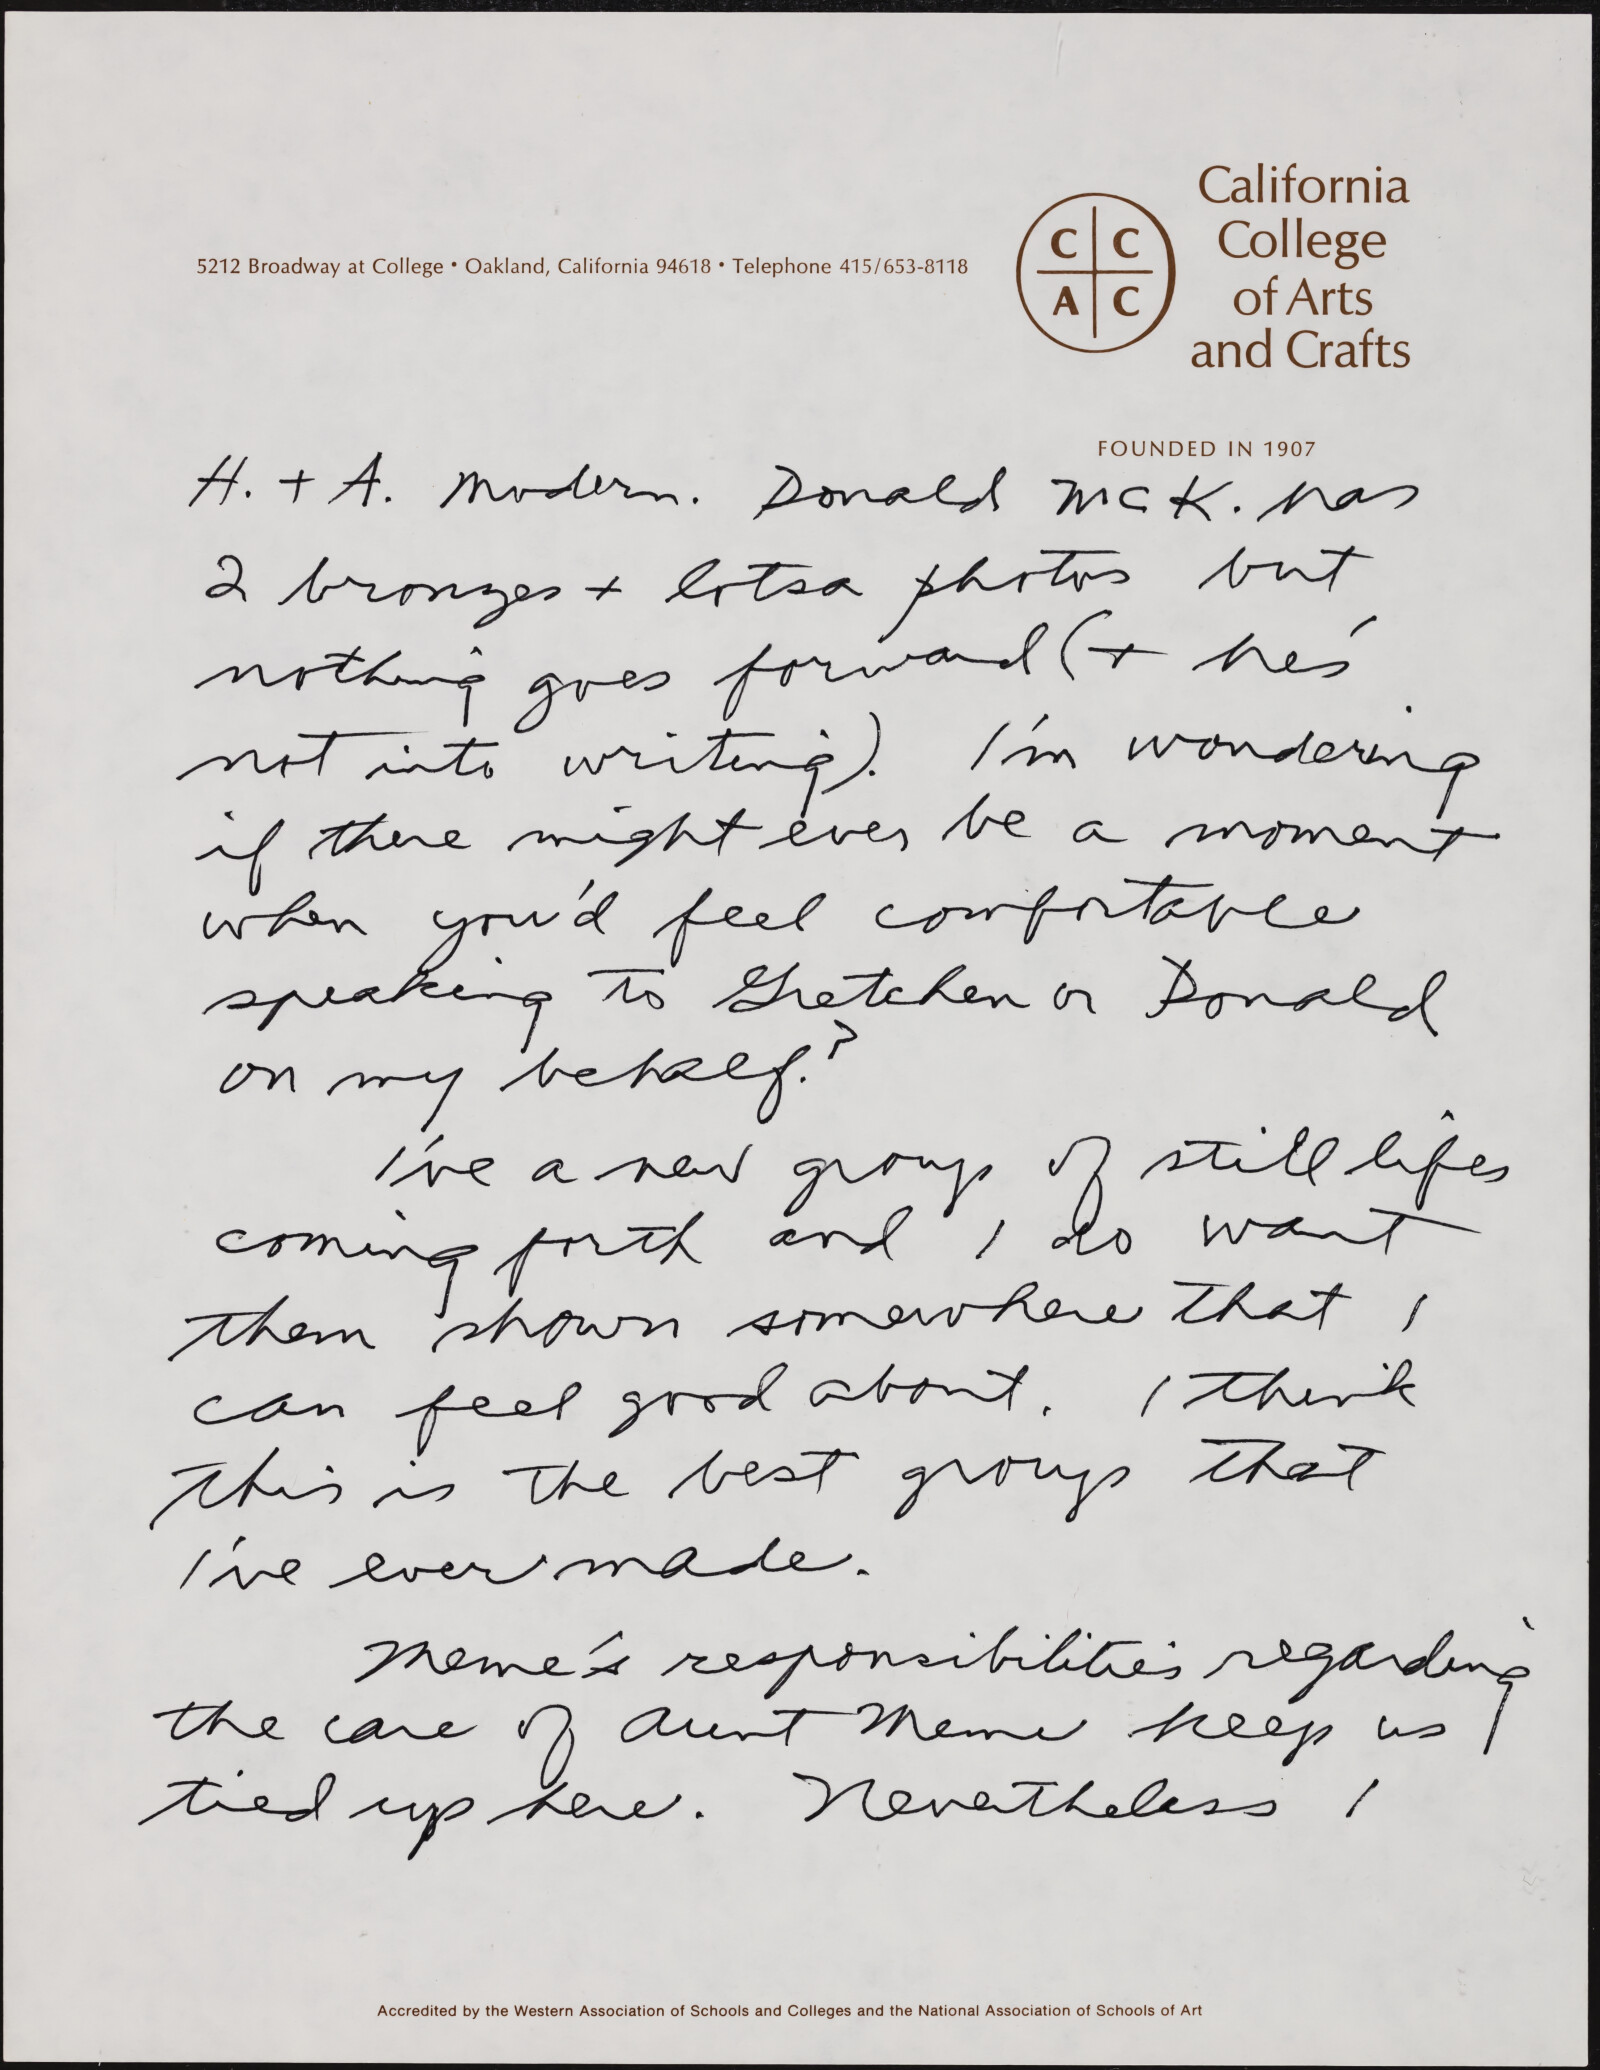 California
College
of Arts
and Crafts
C C
A C
5212 Broadway at College • Oakland, California 94618 • Telephone 415/653-8118
FOUNDED IN 1907
H. + A. Modern. Donald McK. has
2 bronzes + lotsa photos but
nothing goes forward (+ he's
not into writing). I'm wondering
if there might ever be a moment
when you'd feel comfortable
speaking to Gretchen or Donald
on my behalf?
I've a new group of still lifes
coming forth and I do want
them shown somewhere that I
can feel good about. I think
this is the best group that
I've ever made.
Meme's responsibilities regarding
the care of Aunt Meme keep us
tied up here. Nevertheless I
Accredited by the Western Association of Schools and Colleges and the National Association of Schools of Art